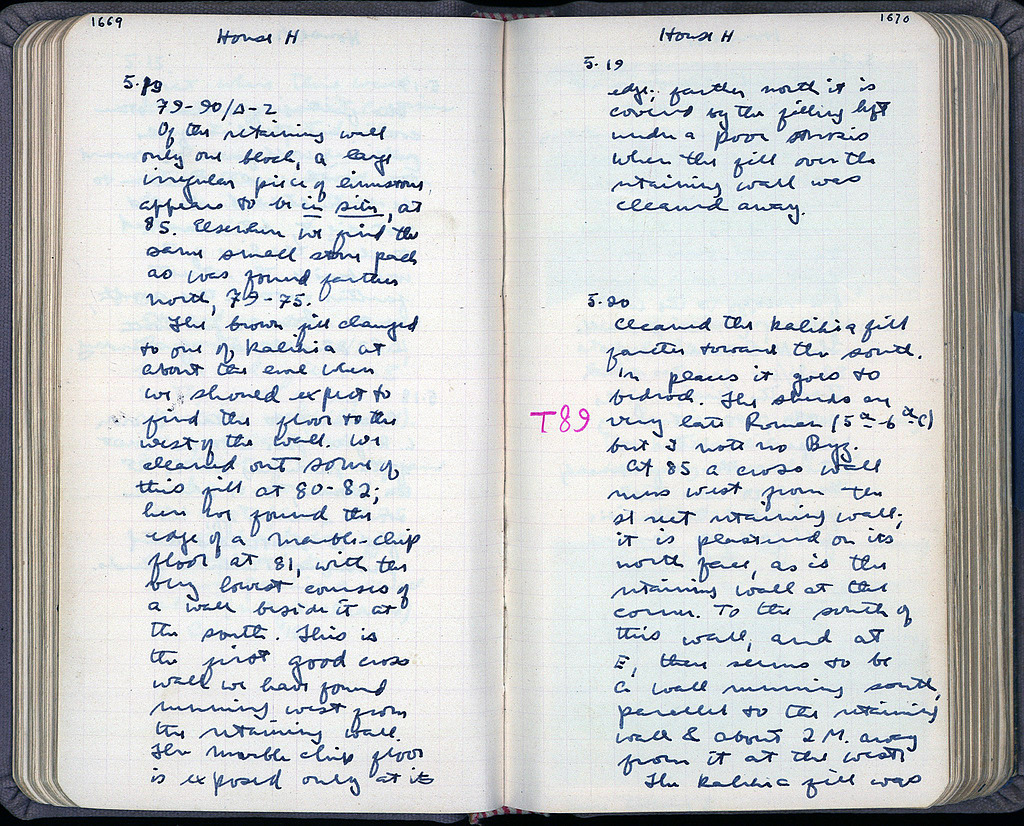 1669
House H
5.19
79-90/Δ-2
Of the retaining wall
only one block, a large
irregular piece of limestone,
appears to be in situ, at
85. Elsewhere we find the
same small stone pack
as was found farther
north, 79-75.
The brown fill changed
to one of kalikia at
about the level when
we should expect to
find the floor to the
west of the wall. We
cleaned out some of
this fill at 80-82;
here we found the
edge of a marble-chip
floor at 81, with the
very lowest courses of
a wall beside it at
the south. This is
the first good cross
wall we have found
running west from
the retaining wall.
The marble chip floor
is exposed only at its
1670
House H
5.19
edge; farther north it is
covered by the filling left
under a poor
when the fill over the
retaining wall was
cleaned away.
5.20
Cleaned the kalikia fill
farther toward the south.
In places it goes to
bedrock. The sherds are
T89
very late Roman (5th-6th C)
but I note no Byz.
At 85 a cross wall
runs west from the
street retaining wall;
it is plastered on its
north face, as is the
retaining wall at the
corner. To the south of
this wall, and at
E, there seems to be
a wall running south,
parallel to the retaining
wall & about 2 M. away
from it at the west.
The kalikia fill was